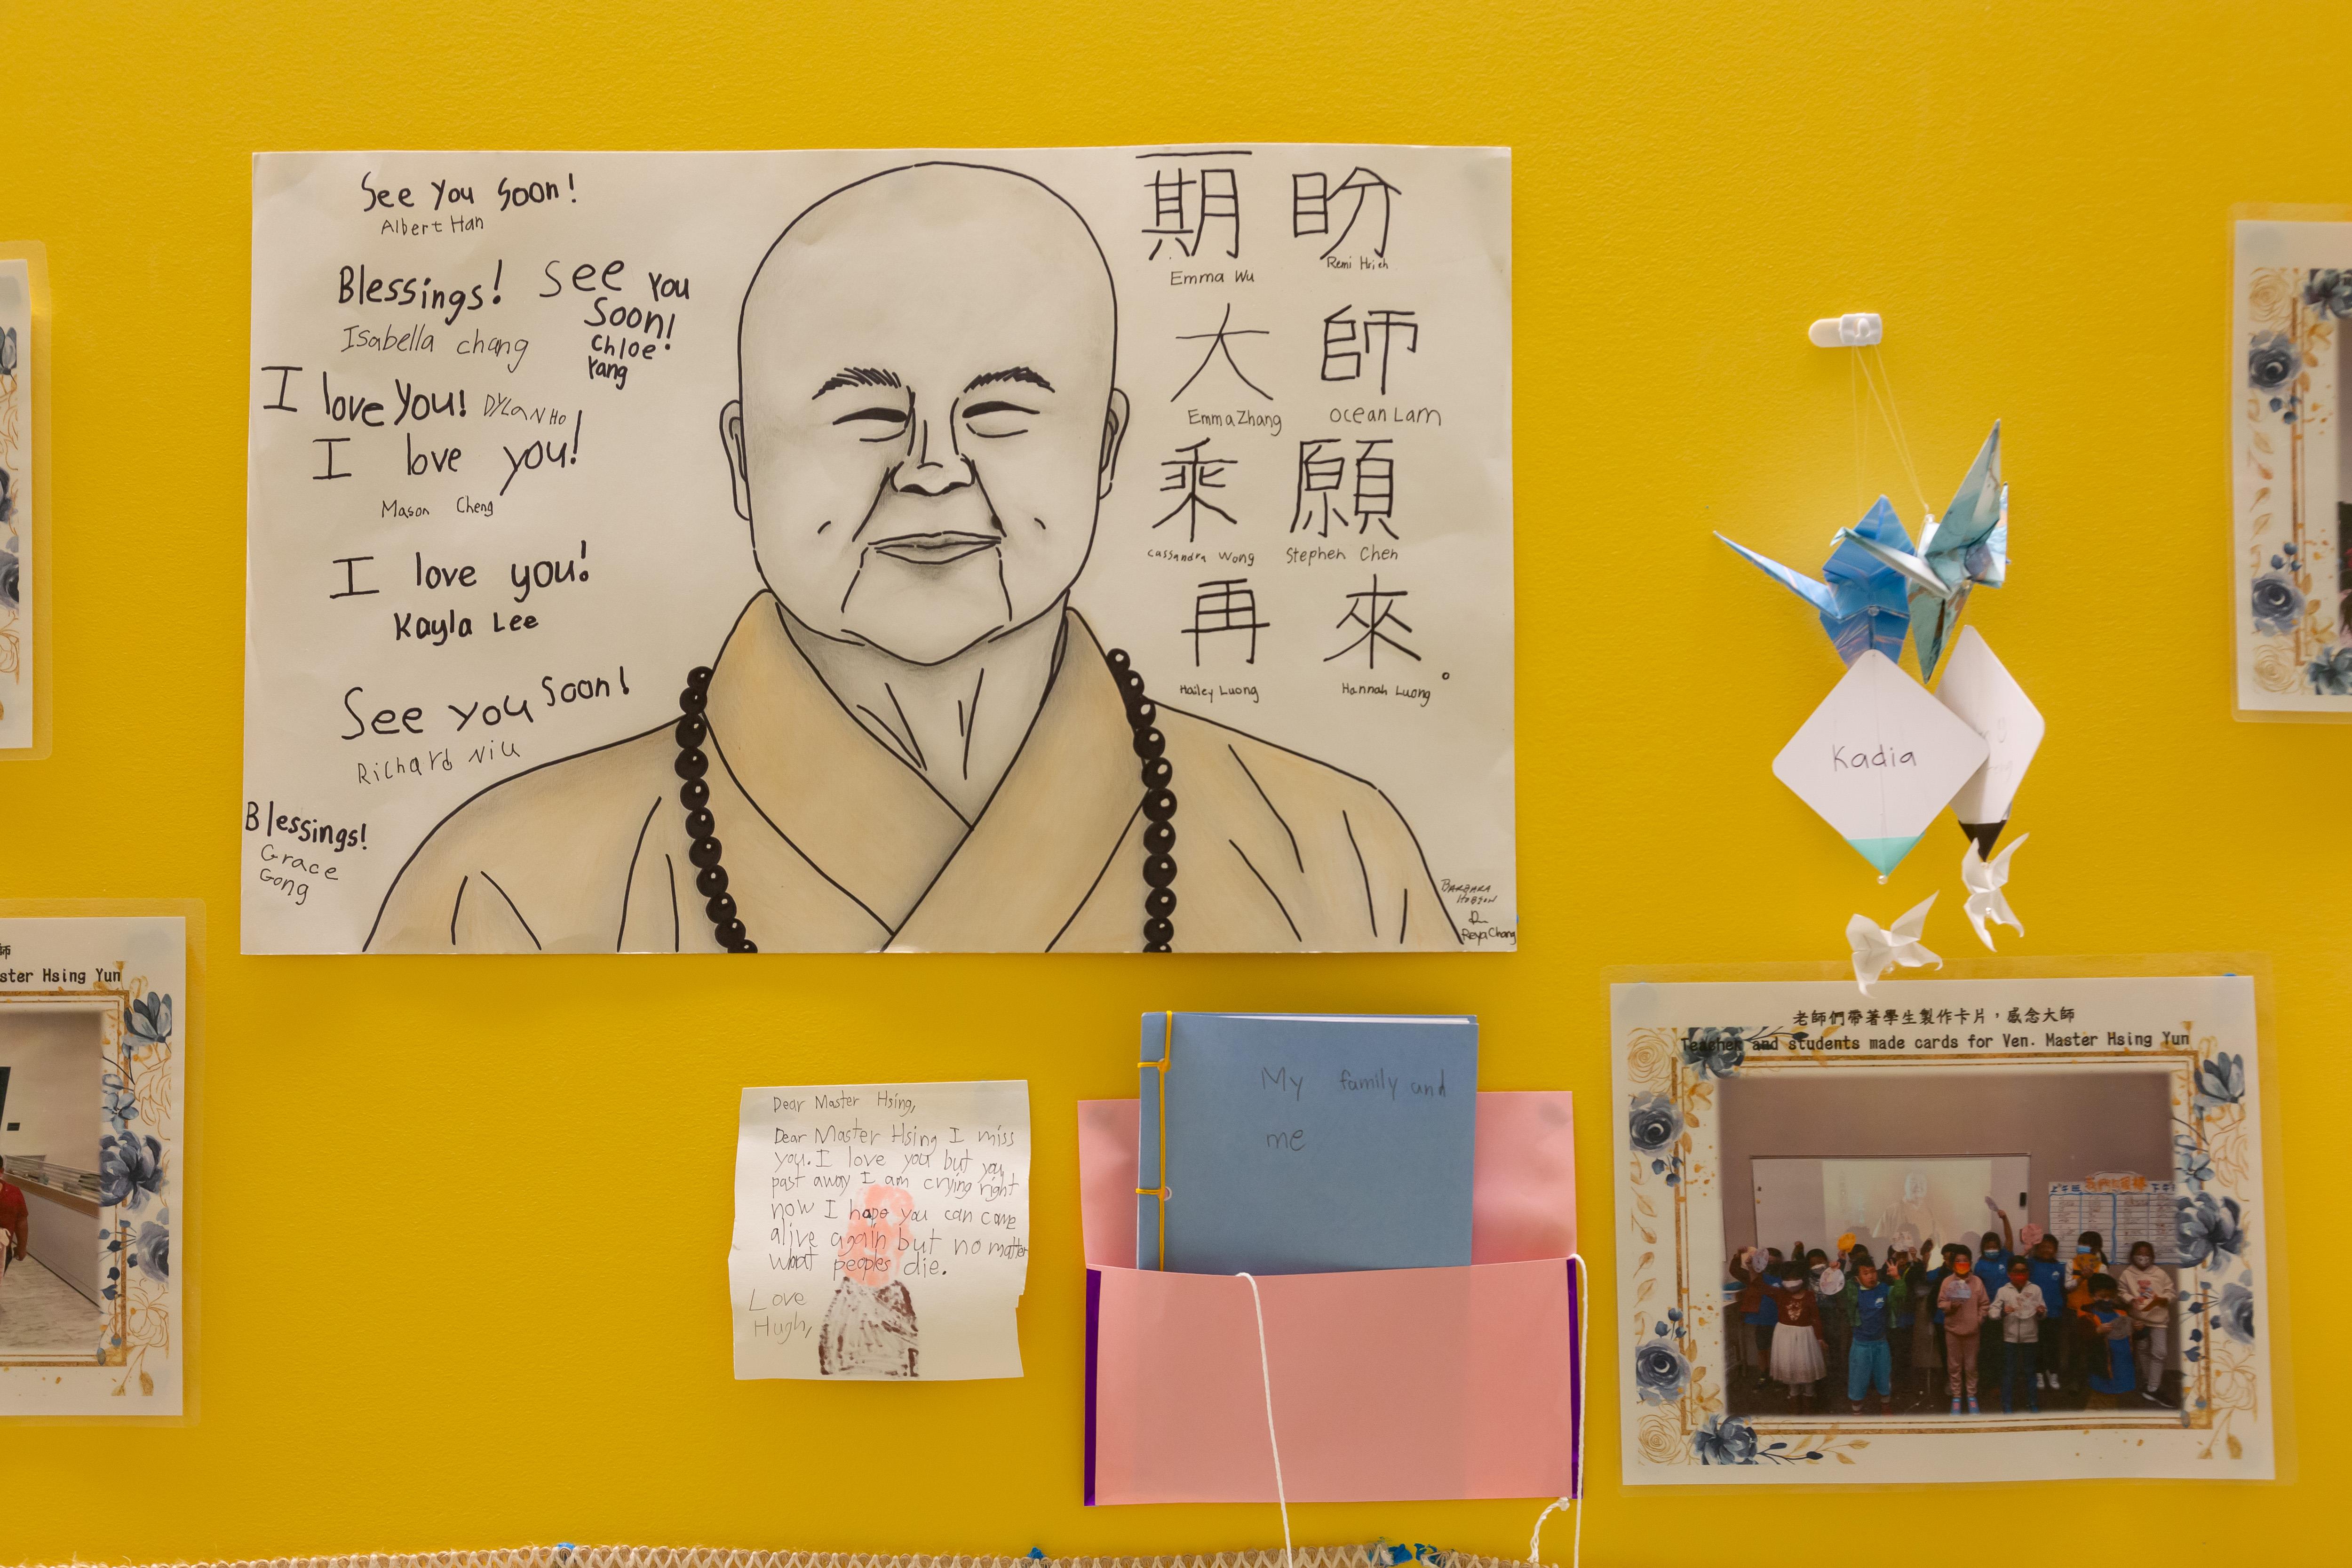 See you soon!
Albert Han
Blessings!
Isabella chang
See you
Soon!
Chloe
Yang
I love you! DYLAN HO
I love you!
Mason Cheng
I love you!
Kayla Lee
See you soon!
Richard Niu
Blessings!
Grace
Gong
期 盼
Emma Wu Remi Hsieh
大 師
Emma Zhang Ocean Lam
乘 願
Cassandra Wong Stephen Chen
再 來。
Hailey Luong Hannah Luong
BARBARA
HOBSON
Reya Chang
Kadia
師
ster Hsing Yun
Dear Master Hsing,
Dear Master Hsing I miss
you. I love you but you
past away I am crying right
now I hope you can come
alive again but no matter
what peoples die.
Love
Hugh,
My family and
me
老師們帶著學生製作卡片，感念大師
Teacher and students made cards for Ven. Master Hsing Yun